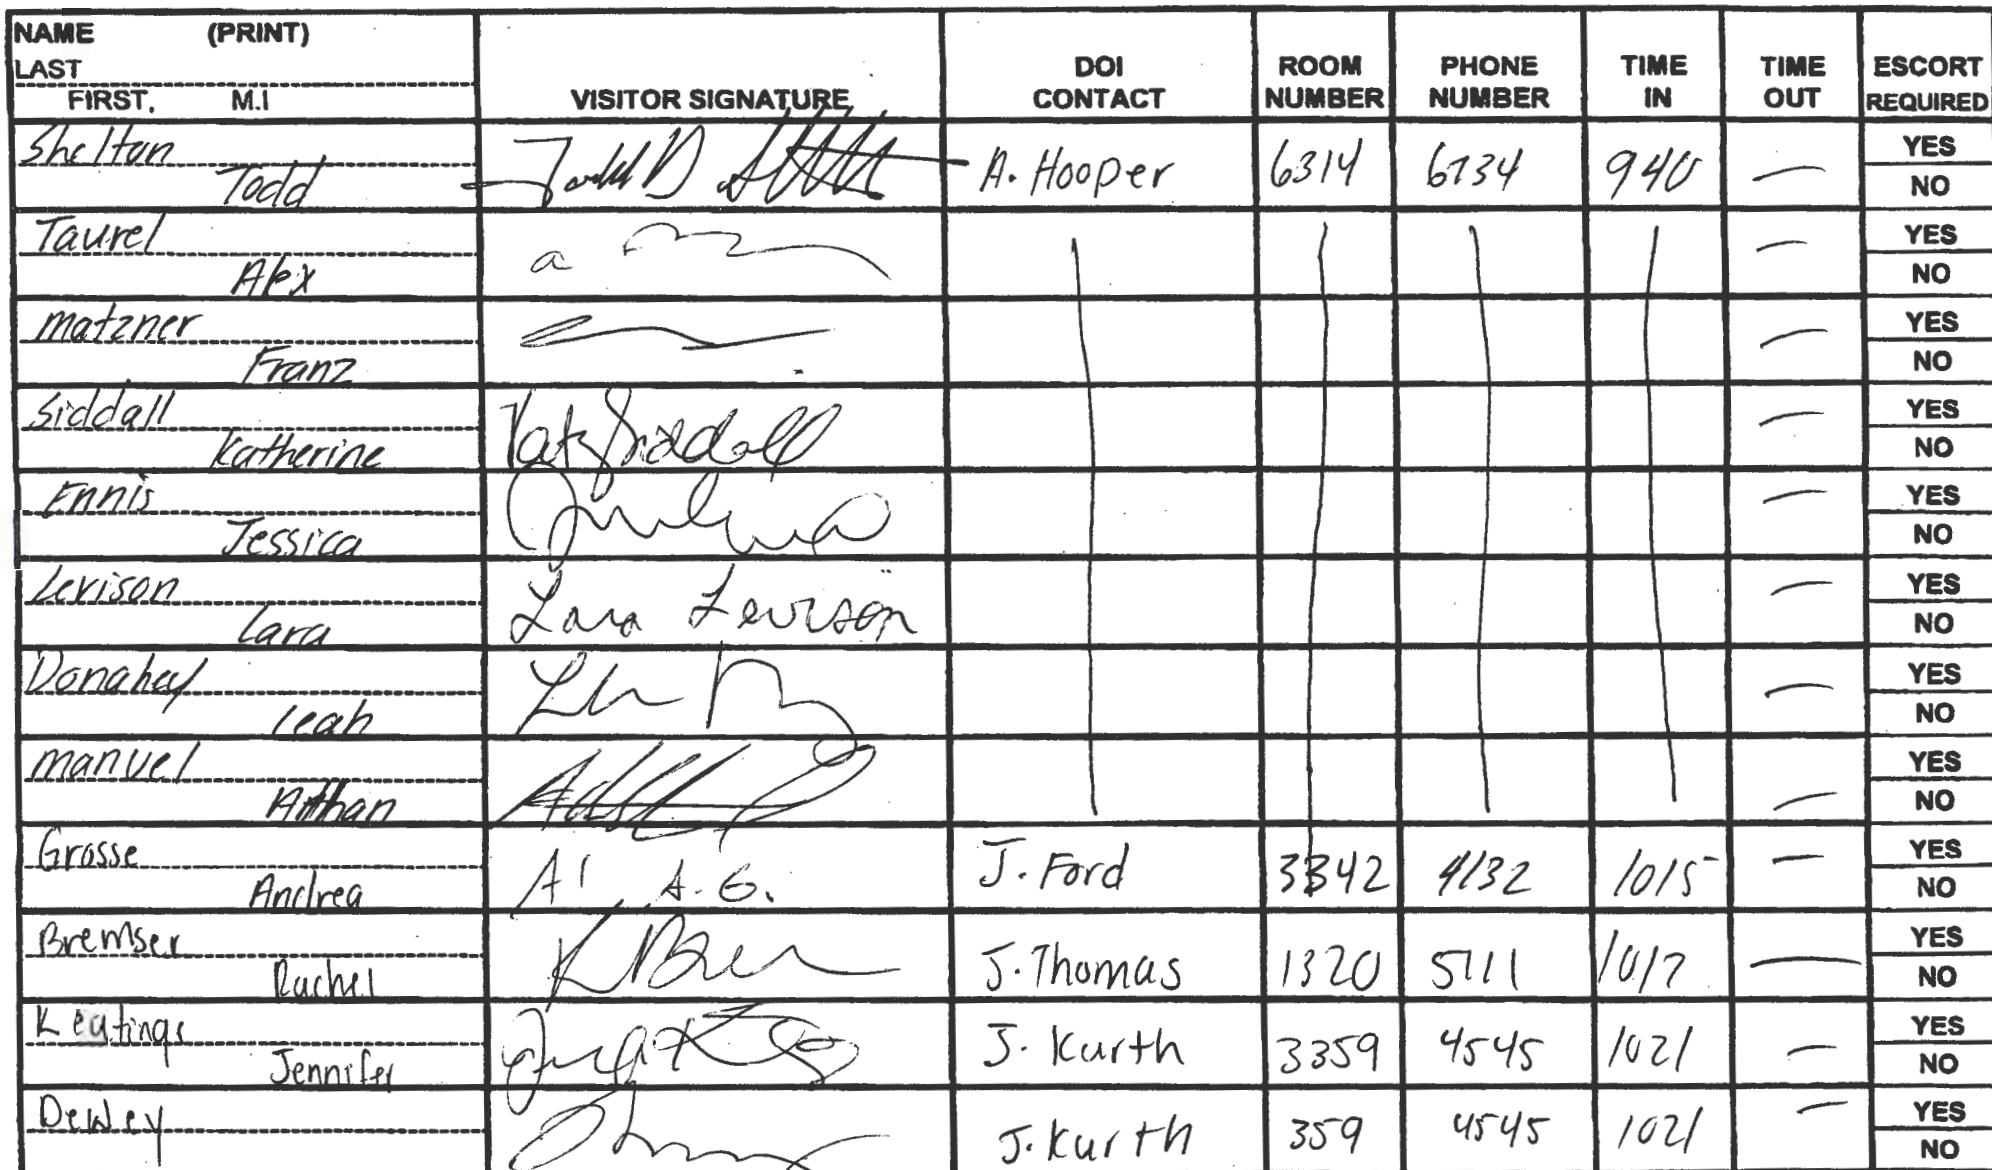 NAME (PRINT)
LAST
FIRST, M.I
VISITOR SIGNATURE
DOI CONTACT
ROOM NUMBER
PHONE NUMBER
TIME IN
TIME OUT
ESCORT REQUIRED
Shelton
Todd
A. Hooper 6314 6734 940 —
YES
NO
Taurel
Alex
—
YES
NO
Matzner
Franz
—
YES
NO
Siddall
Katherine
Katy Siddall
—
YES
NO
Ennis
Jessica
—
YES
NO
Levison
Lara
Lara Levison
—
YES
NO
Donahey
Leah
—
YES
NO
Manuel
Athan
—
YES
NO
Grosse
Andrea
A. G. J. Ford 3342 4132 1015 —
YES
NO
Bremser
Rachel
J. Thomas 1320 5711 1017 —
YES
NO
Keatings
Jennifer
J. Kurth 3359 4545 1021 —
YES
NO
Dewey
J. Kurth 359 4545 1021 —
YES
NO